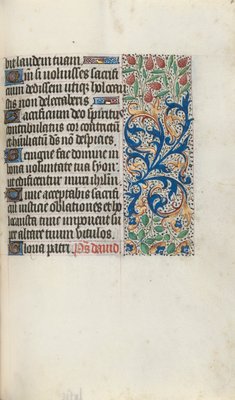 bit laudem tuam.
Qm si voluisses sacrifi
cium dedissem utiq; holocau
stis non delectaberis.
Sacrificium deo spiritus
contribulatus cor contritū
et humiliatū ds nō despicies.
Benigne fac domine in
bona voluntate tua syon
ut edificentur muri ihrlm.
Tunc acceptabis sacrifi
ciū iusticie oblationes et ho
locausta tunc imponent su
per altare tuum vitulos.
Gloria patri. Ps david